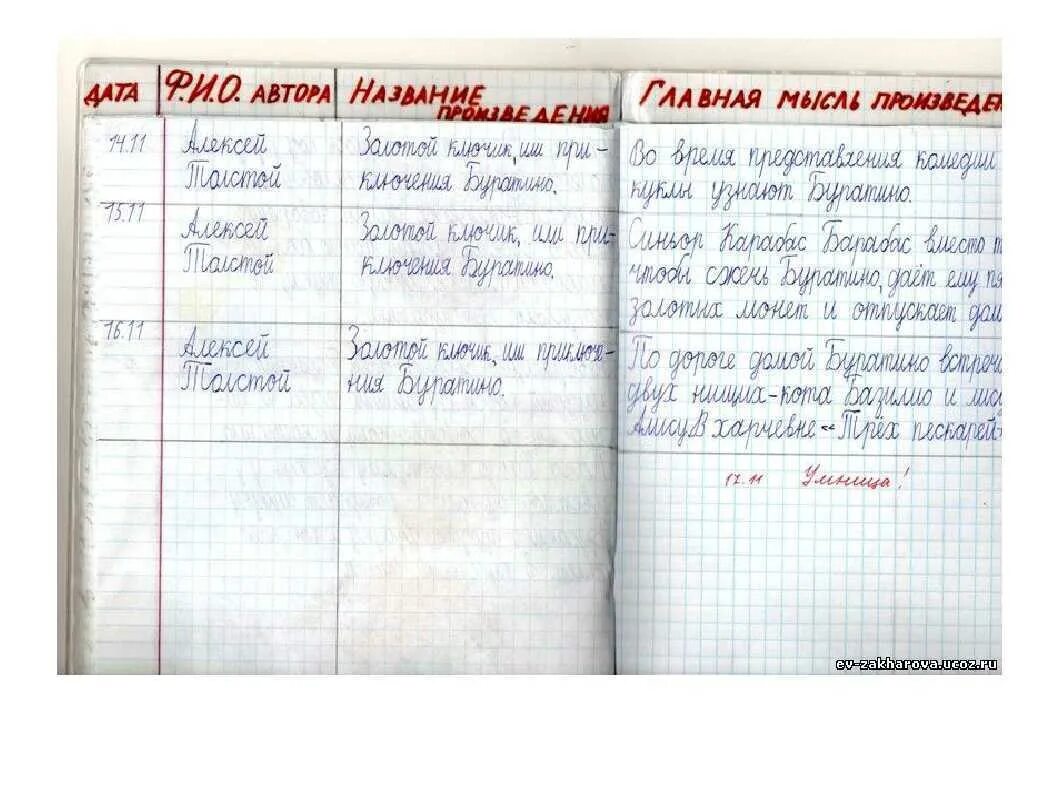 ДАТА Ф.И.О. АВТОРА НАЗВАНИЕ ПРОИЗВЕДЕНИЯ ГЛАВНАЯ МЫСЛЬ ПРОИЗВЕДЕН
14.11
Алексей
Толстой
Золотой ключик, или при-
ключения Буратино.
Во время представления комедии
куклы узнают Буратино.
15.11
Алексей
Толстой
Золотой ключик, или при-
ключения Буратино.
Синьор Карабас Барабас вместо т
чтобы сжечь Буратино, даёт ему пя
золотых монет и отпускает дом
16.11
Алексей
Толстой
Золотой ключик, или приключе-
ния Буратино.
По дороге домой Буратино встреча
двух нищих-кота Базилио и лис
Алису. В харчевне «Трёх пескарей
17.11 Умница!
ev-zakharova.ucoz.ru